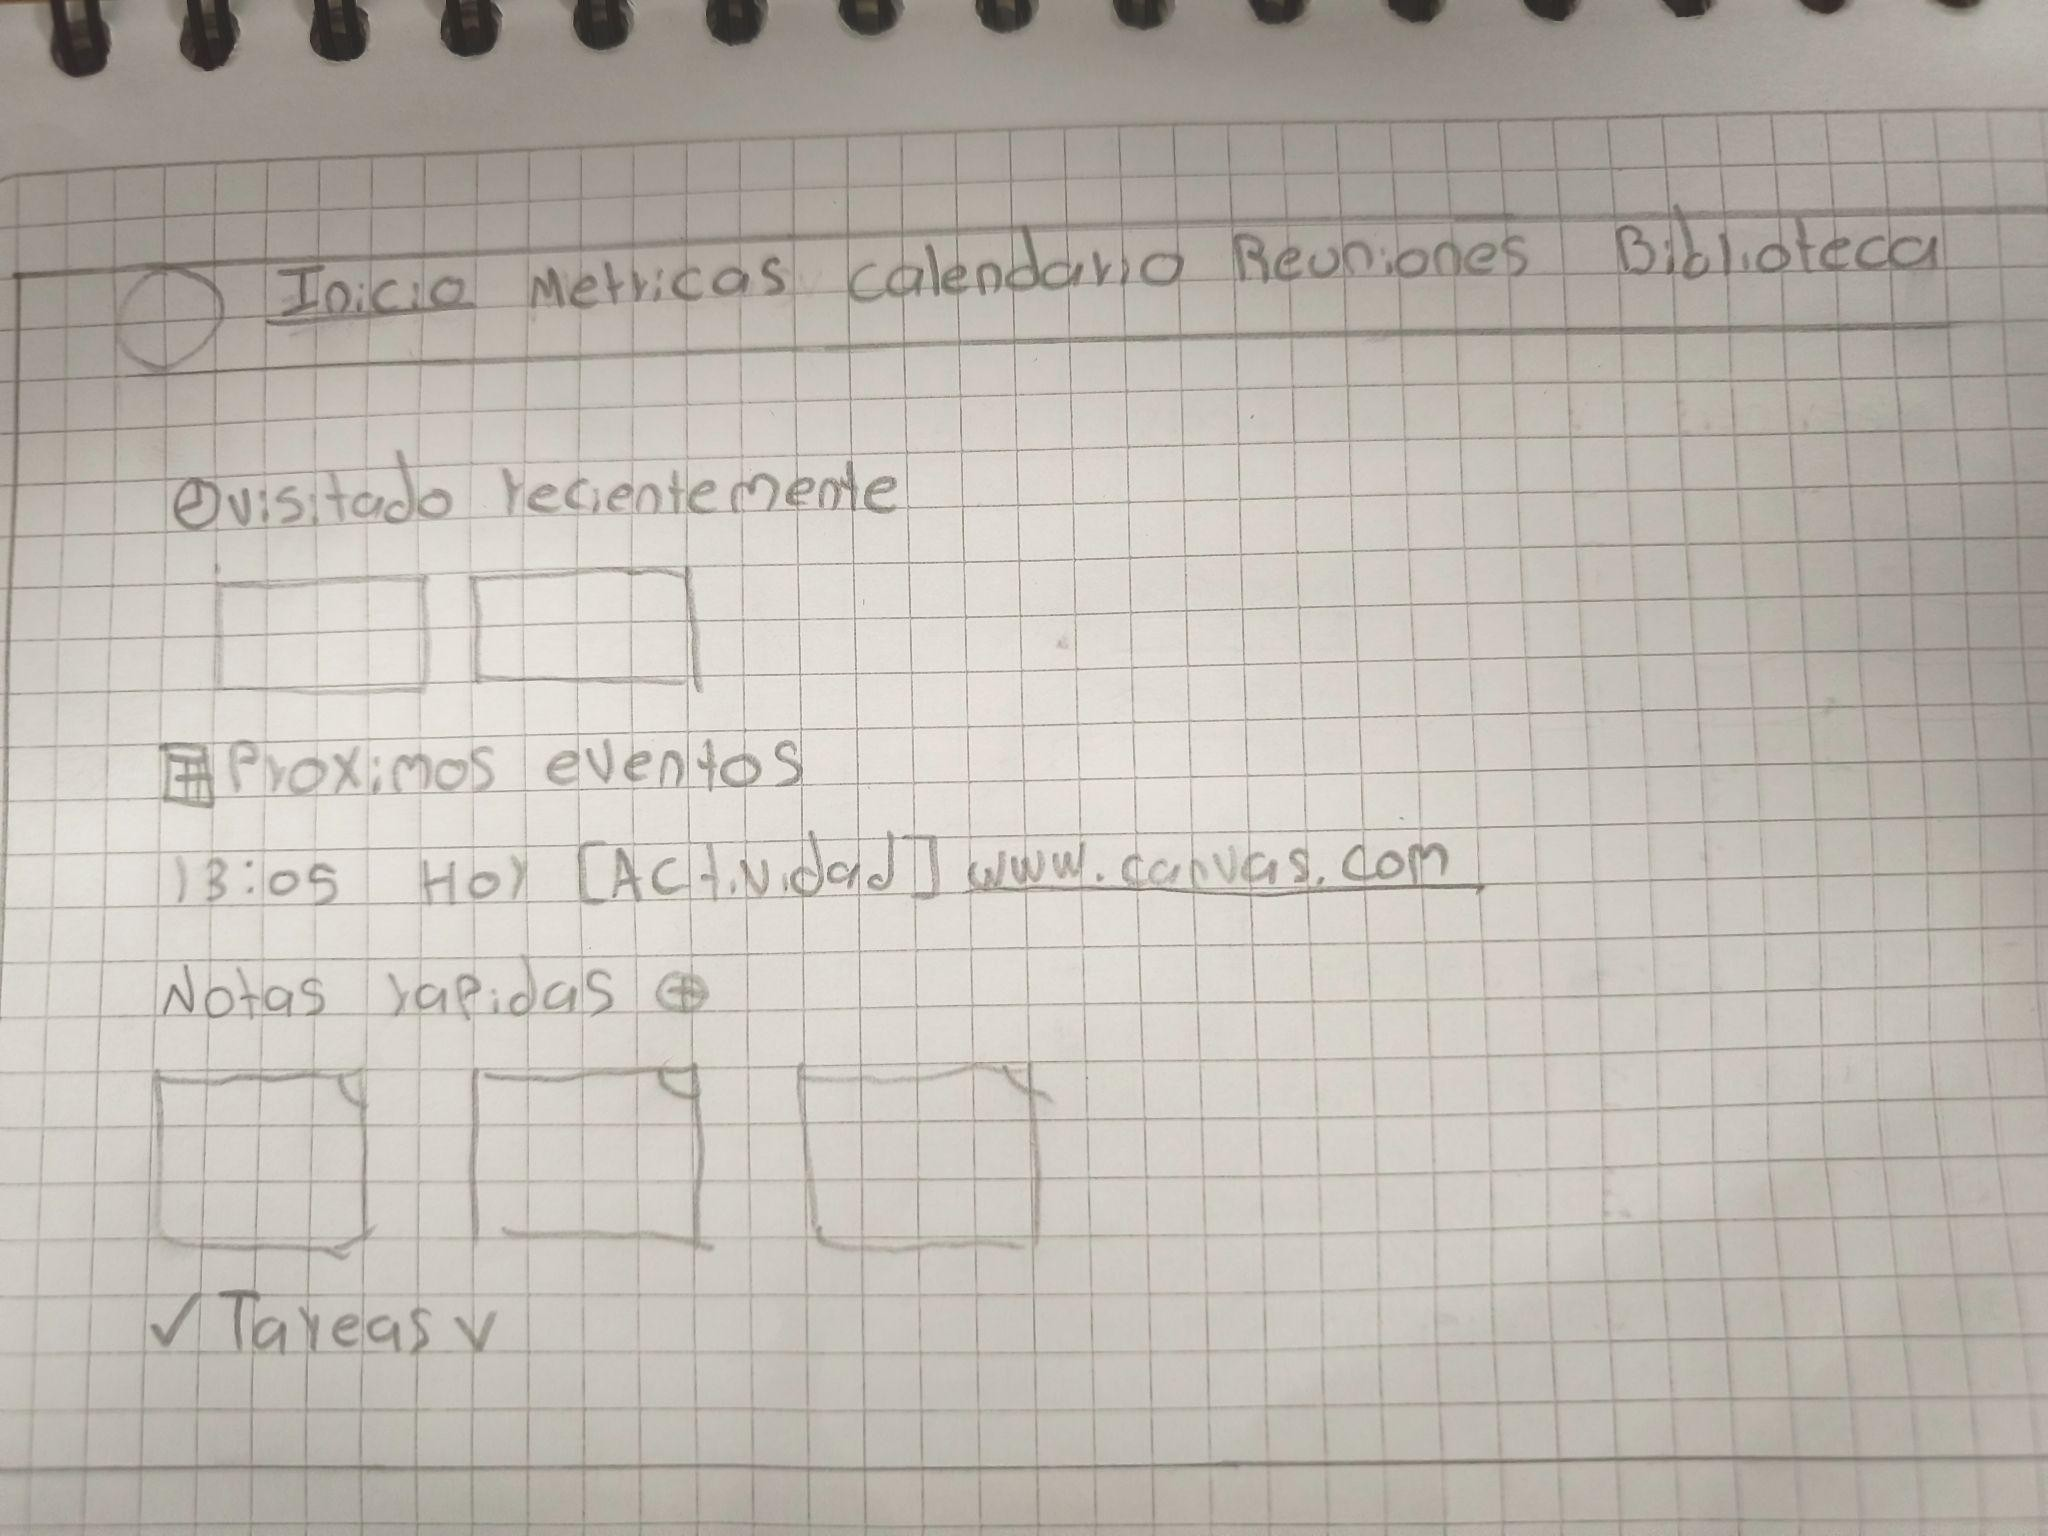 Inicio Metricas calendario Reuniones Biblioteca
visitado recientemente
Proximos eventos
13:05 Hoy [Actividad] www.canvas.com
Notas rapidas ⊕
✓ Tareas v